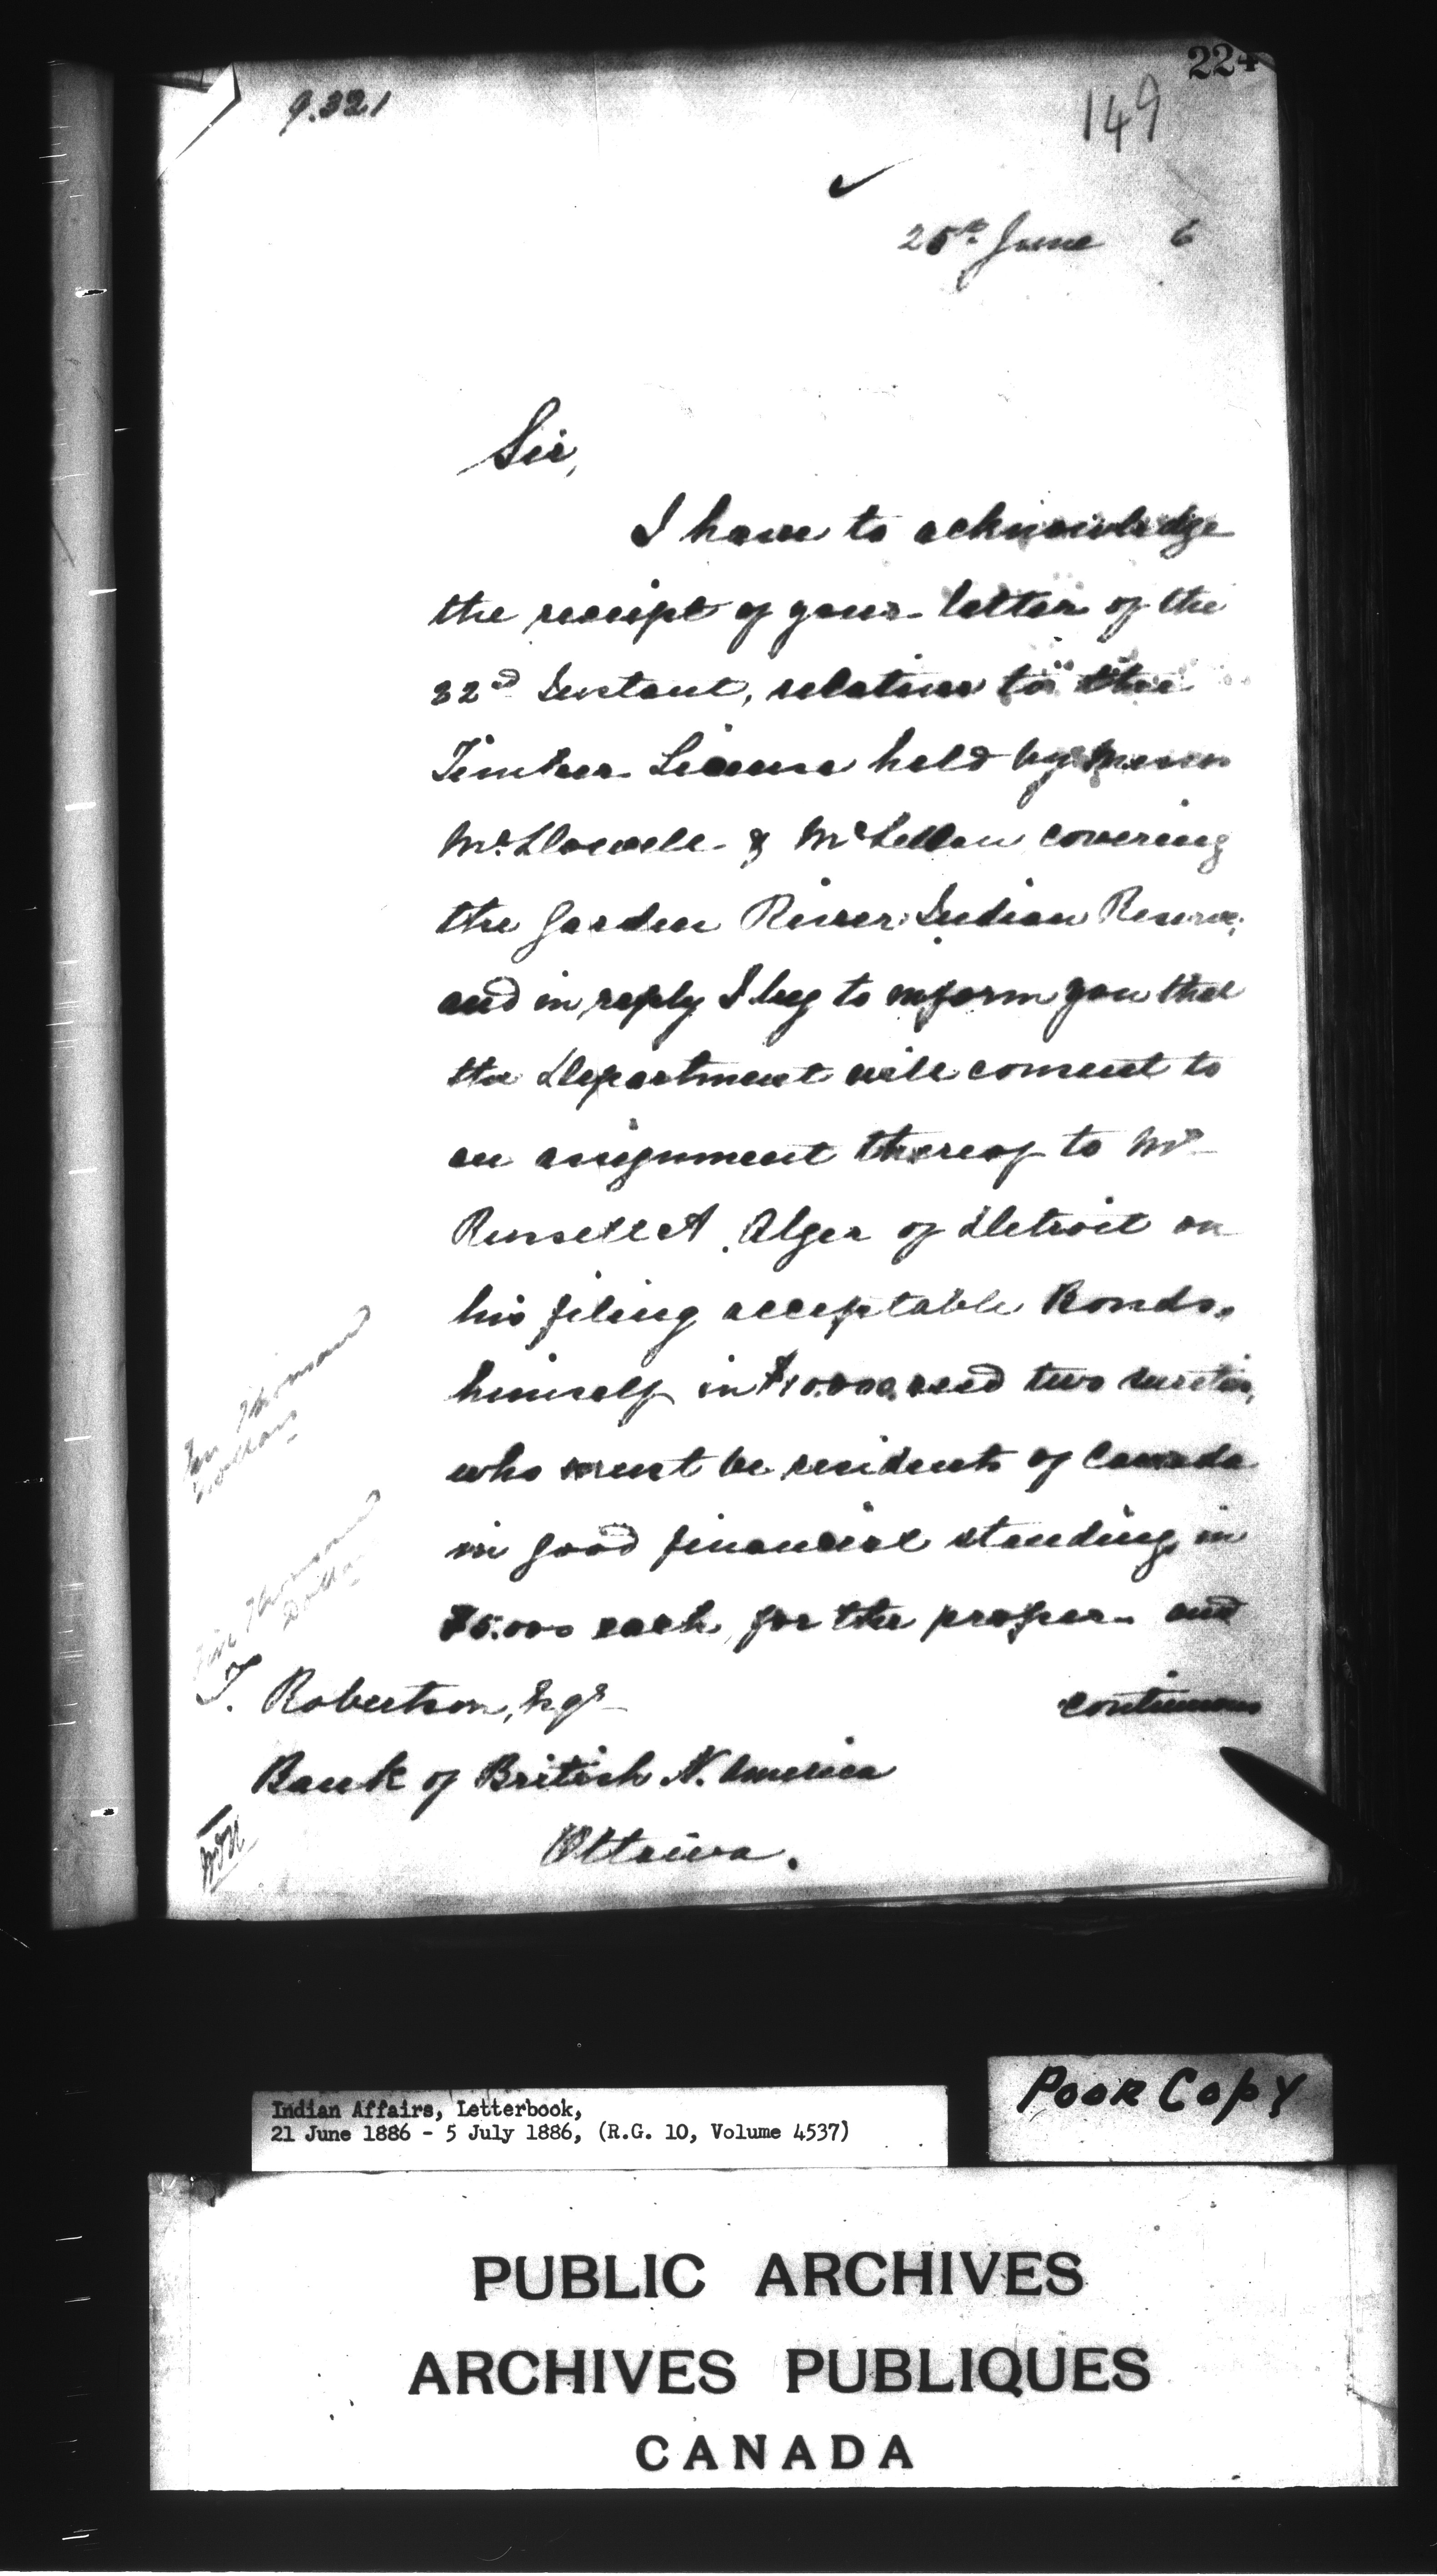 224
9.321
149
25th June 6
Sir,
I have to acknowledge
the receipt of your letter of the
22nd Instant, relative to the
Timber License held by Messrs
McDowell & McLellan covering
the Garden River Indian Reserve,
and in reply I beg to inform you that
the Department will consent to
an assignment thereof to Mr
Russell A. Alger of Detroit on
his filing acceptable Bonds,
himself in $10.000, and two sureties,
who must be residents of Canada
in good financial standing, in
$5.000 each, for the proper and
continuous
Ten Thousand
Dollars
Five Thousand
Dollars
T. Robertson, Esqr
Bank of British N. America
Ottawa.
Indian Affairs, Letterbook,
21 June 1886 - 5 July 1886, (R.G. 10, Volume 4537)
POOR COPY
PUBLIC ARCHIVES
ARCHIVES PUBLIQUES
CANADA